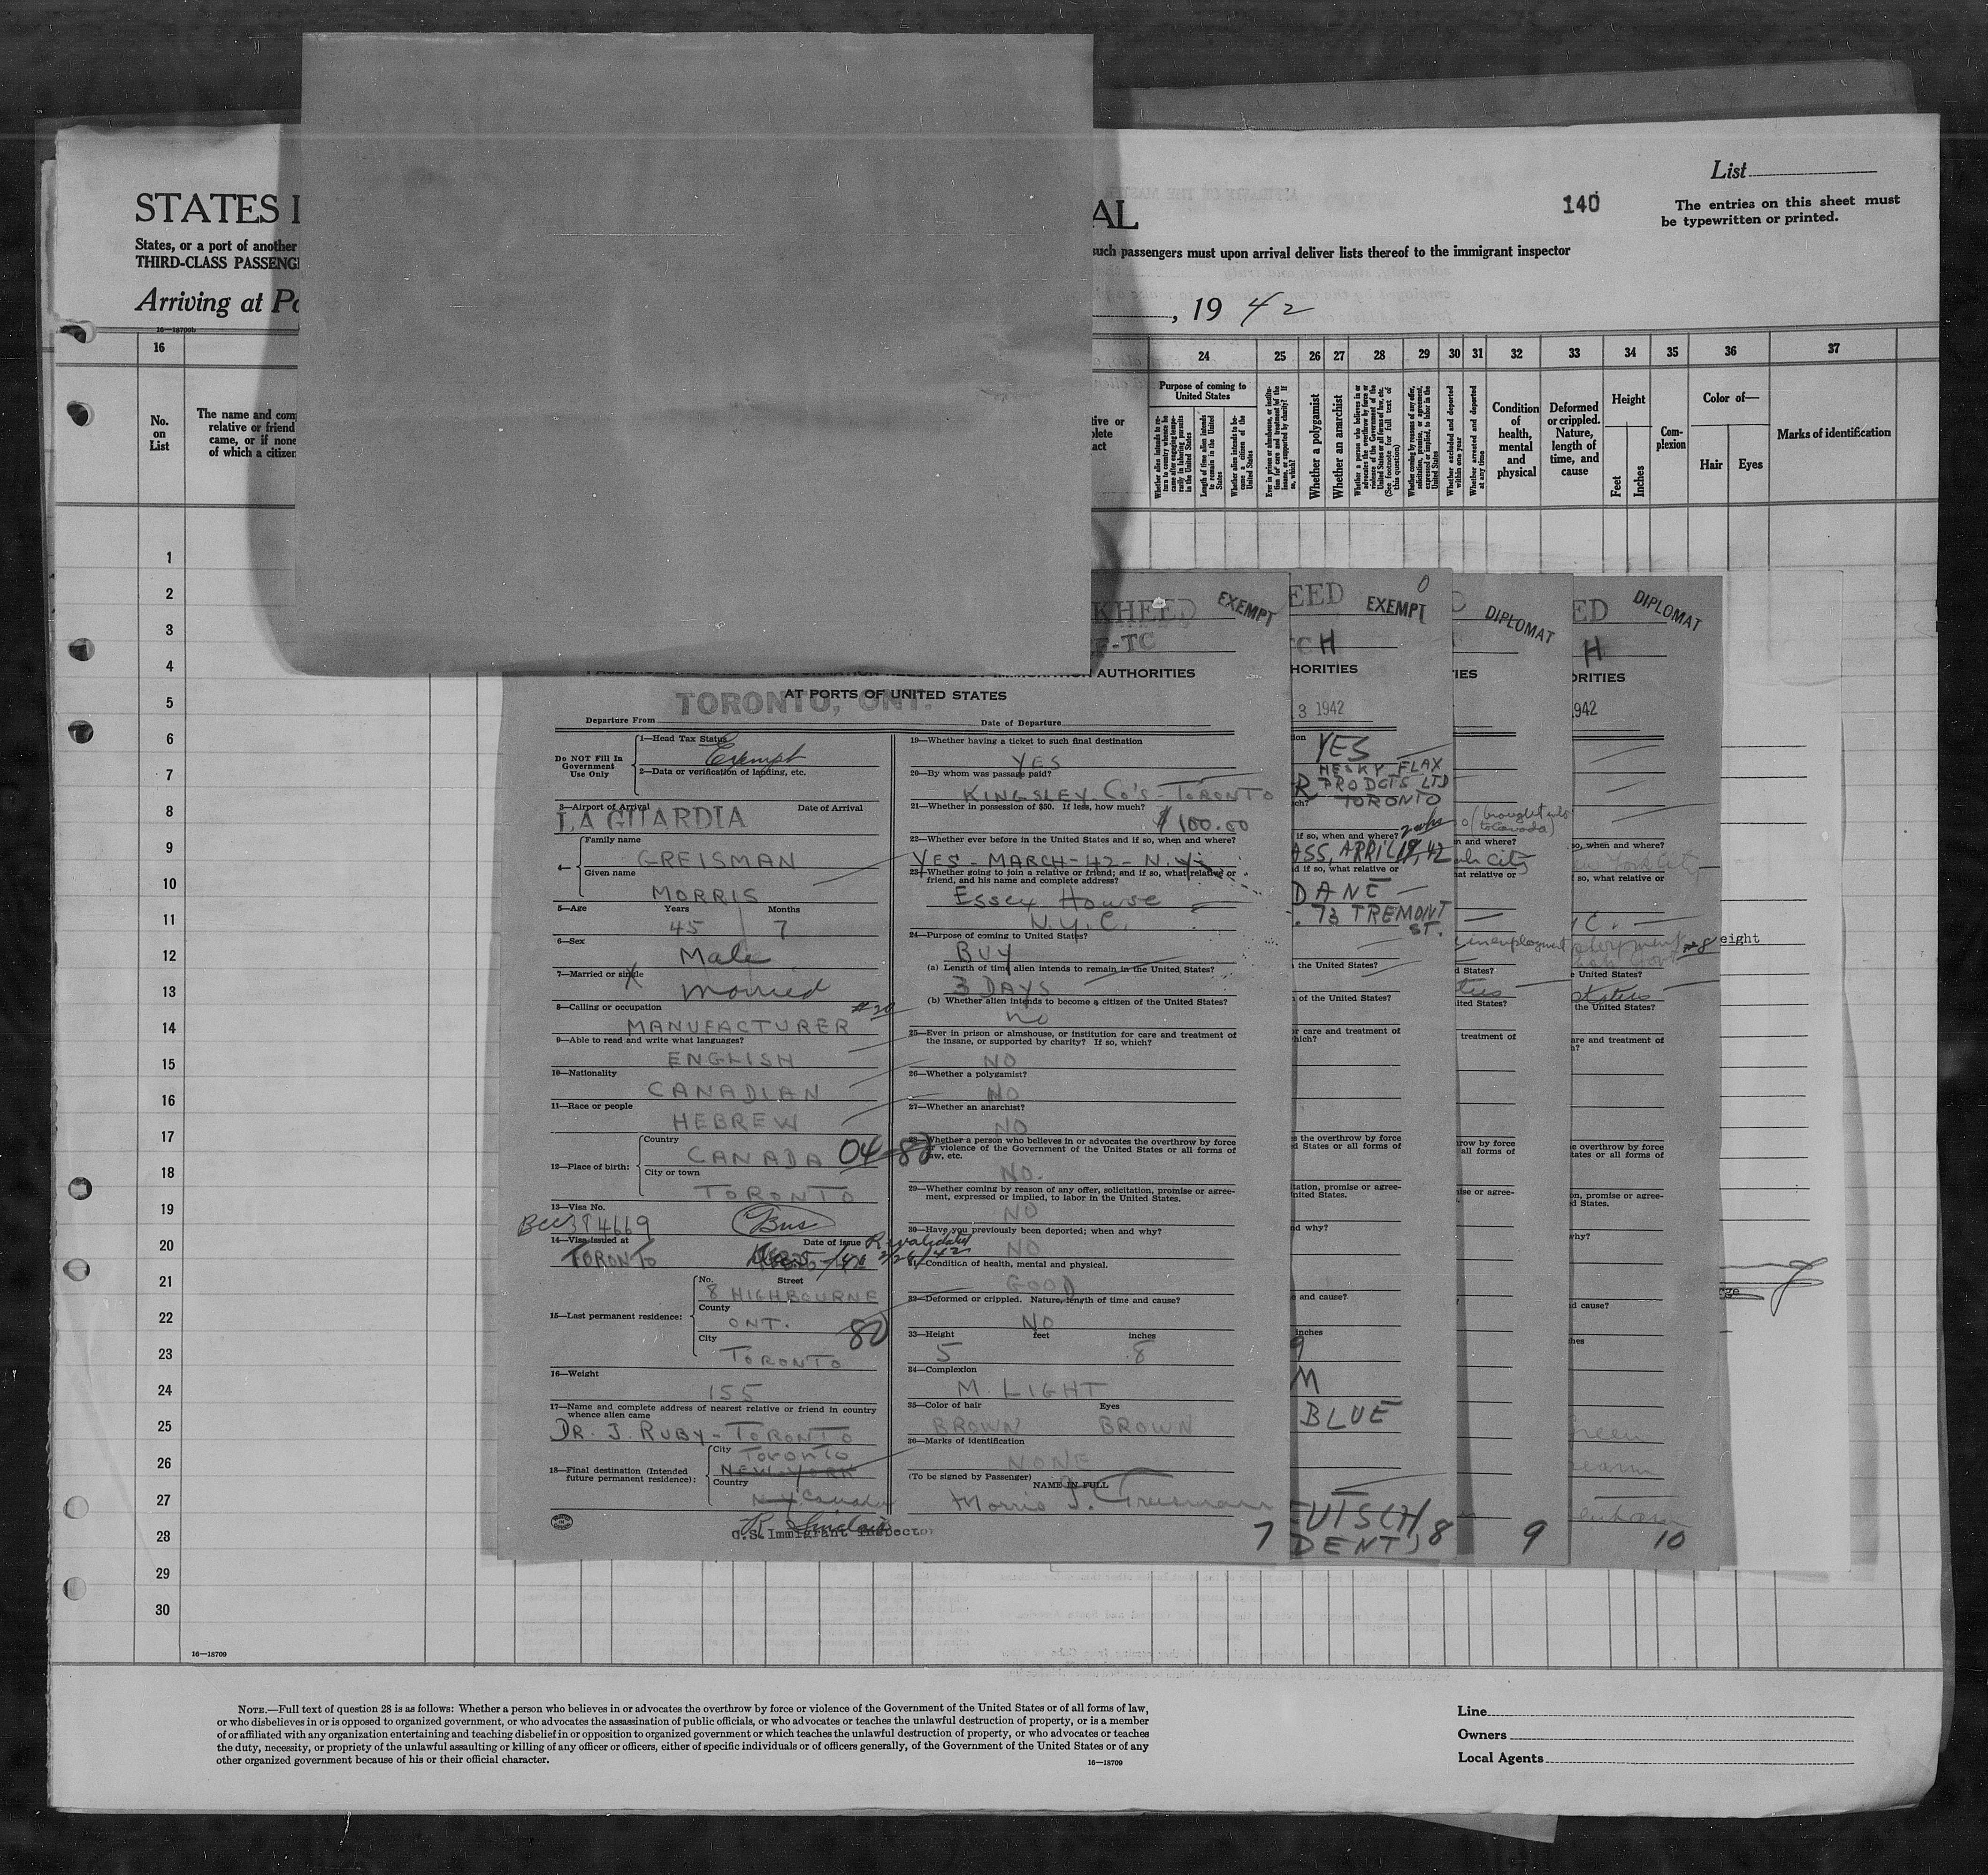 STATES
AL
140
List
The entries on this sheet must
be typewritten or printed.
States, or a port of another
such passengers must upon arrival deliver lists thereof to the immigrant inspector
THIRD-CLASS
Arriving at
, 19 42
16—18709b
16
24
25
26
27
28
29
30
31
32
33
34
35
36
37
Purpose of coming to
United States
No.
on
List
The name and
relative or friend
came, or if none
of which a citizen
Whether a polygamist
Whether an anarchist
Condition
of
health,
mental
and
physical
Deformed
or crippled.
Nature,
length of
time, and
cause
Height
Feet
Inches
Com-
plexion
Color of—
Hair
Eyes
Marks of identification
1
2
3
4
5
6
7
8
9
10
11
12
13
14
15
16
17
18
19
20
21
22
23
24
25
26
27
28
29
30
16—18709
KHEED
EXEMPT
F-TC
AUTHORITIES
AT PORTS OF UNITED STATES
TORONTO, ONT.
Departure From
Date of Departure
Do NOT Fill In
Government
Use Only
1—Head Tax Status
Exempt
2—Data or verification of landing, etc.
3—Airport of Arrival
Date of Arrival
LA GUARDIA
4—
Family name
GREISMAN
Given name
MORRIS
5—Age
Years
Months
45
7
6—Sex
Male
7—Married or single
Married
8—Calling or occupation
#20
MANUFACTURER
9—Able to read and write what languages?
ENGLISH
10—Nationality
CANADIAN
11—Race or people
HEBREW
12—Place of birth:
Country
CANADA 04-80
City or town
TORONTO
13—Visa No.
Bus
14—Visa issued at
Date of issue Revalidated
TORONTO
15—Last permanent residence:
No.
Street
8 HIGHBOURNE
County
ONT.
80
City
TORONTO
16—Weight
155
17—Name and complete address of nearest relative or friend in country
whence alien came
DR. J. RUBY - TORONTO
18—Final destination (Intended
future permanent residence):
City
Toronto
NEW YORK
Country
N.Y. Canada
U.S. Immigrant Inspector
19—Whether having a ticket to such final destination
YES
20—By whom was passage paid?
KINGSLEY Co's - TORONTO
21—Whether in possession of $50. If less, how much?
$100.00
22—Whether ever before in the United States and if so, when and where?
YES - MARCH - 42 - N.Y.
23—Whether going to join a relative or friend; and if so, what relative or
friend, and his name and complete address?
Essex House
N.Y.C.
24—Purpose of coming to United States?
BUY
(a) Length of time alien intends to remain in the United States?
3 DAYS
(b) Whether alien intends to become a citizen of the United States?
NO
25—Ever in prison or almshouse, or institution for care and treatment of
the insane, or supported by charity? If so, which?
NO
26—Whether a polygamist?
NO
27—Whether an anarchist?
NO
28—Whether a person who believes in or advocates the overthrow by force
or violence of the Government of the United States or all forms of
law, etc.
NO.
29—Whether coming by reason of any offer, solicitation, promise or agree-
ment, expressed or implied, to labor in the United States.
NO
30—Have you previously been deported; when and why?
NO
31—Condition of health, mental and physical.
GOOD
32—Deformed or crippled. Nature, length of time and cause?
NO
33—Height
feet
inches
5
8
34—Complexion
M. LIGHT
35—Color of hair
Eyes
BROWN
BROWN
36—Marks of identification
NONE
(To be signed by Passenger)
NAME IN FULL
Morris J. Greisman
7
EED
EXEMPT
H
HORITIES
3 1942
YES
HESKY FLAX
R PRODCTS LTD
TORONTO
if so, when and where?
ASS, APRIL 19, 42
d if so, what relative or
DANE
73 TREMONT
ST.
the United States?
of the United States?
r care and treatment of
hich?
s the overthrow by force
d States or all forms of
tation, promise or agree-
nited States.
d why?
e and cause?
inches
9
M
BLUE
EUTSCH
DENT) 8
DIPLOMAT
IES
(brought into
to Canada)
n and where?
City
at relative or
unemployment
d States?
ited States?
treatment of
row by force
all forms of
ise or agree-
9
ED
DIPLOMAT
H
ORITIES
1942
so, when and where?
New York City
f so, what relative or
#8
e United States?
the United States?
are and treatment of
h?
e overthrow by force
tates or all forms of
on, promise or agree-
d States.
why?
d cause?
hes
Green
10
eight
NOTE.—Full text of question 28 is as follows: Whether a person who believes in or advocates the overthrow by force or violence of the Government of the United States or of all forms of law,
or who disbelieves in or is opposed to organized government, or who advocates the assassination of public officials, or who advocates or teaches the unlawful destruction of property, or is a member
of or affiliated with any organization entertaining and teaching disbelief in or opposition to organized government or which teaches the unlawful destruction of property, or who advocates or teaches
the duty, necessity, or propriety of the unlawful assaulting or killing of any officer or officers, either of specific individuals or of officers generally, of the Government of the United States or of any
other organized government because of his or their official character.
16—18709
Line
Owners
Local Agents